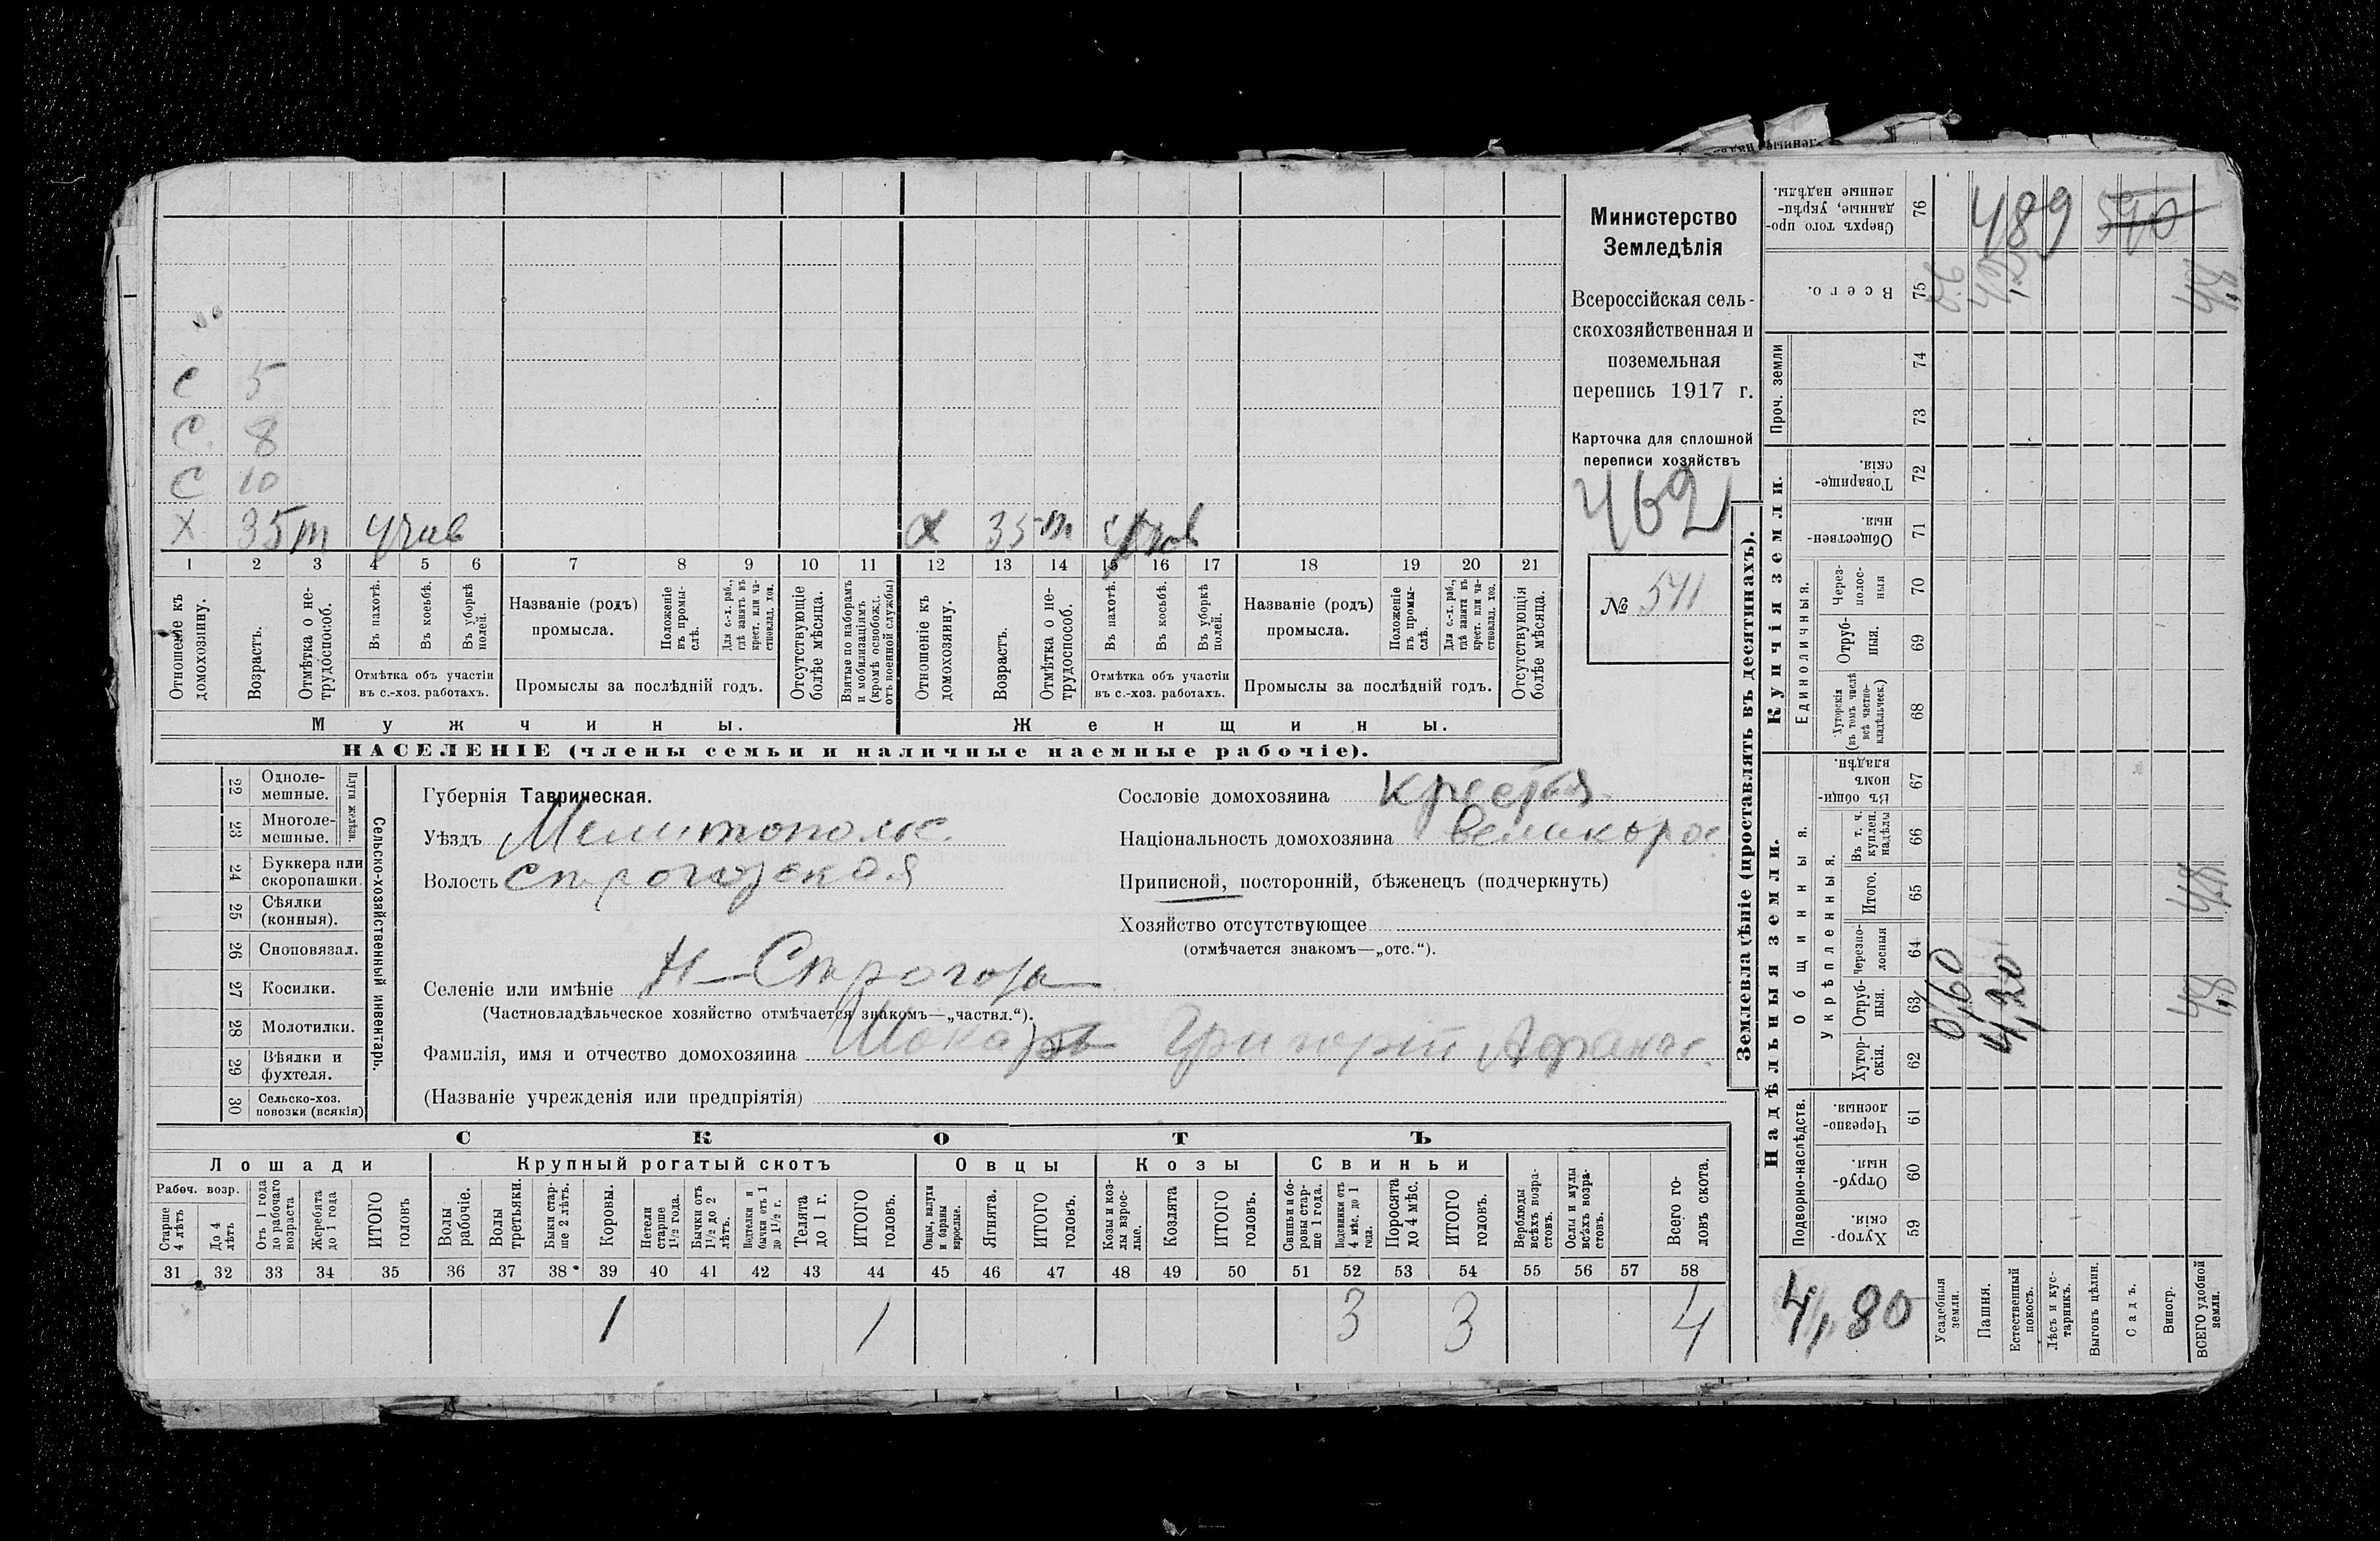 С 5
С 8
С 10
Х 35 т учав
Х 35 т
1 2 3 4 5 6 7 8 9 10 11 12 13 14 15 16 17 18 19 20 21
Отношеніе къ домохозяину.
Возрастъ.
Отмѣтка о не-
трудоспособ.
Въ пахотѣ.
Въ косьбѣ.
Въ уборкѣ
полей.
Отмѣтка объ участіи
въ с.-хоз. работахъ.
Названіе (родъ)
промысла.
Положеніе
въ промы-
слѣ.
Для с.-х. раб.,
гдѣ занятъ въ
крест. или ча-
стновлад. хоз.
Промыслы за послѣдній годъ.
Отсутствующіе
болѣе мѣсяца.
Взятые по наборамъ
и мобилизаціямъ
(кромѣ освобожд.
отъ военной службы)
Отношеніе къ
домохозяину.
Возрастъ.
Отмѣтка о не-
трудоспособ.
Въ пахотѣ.
Въ косьбѣ.
Въ уборкѣ
полей.
Отмѣтка объ участіи
въ с.-хоз. работахъ.
Названіе (родъ)
промысла.
Положеніе
въ промы-
слѣ.
Для с.-х. раб.,
гдѣ занята въ
крест. или ча-
стновлад. хоз.
Промыслы за послѣдній годъ.
Отсутствующія
болѣе мѣсяца.
Мужчины.
Женщины.
НАСЕЛЕНІЕ (члены семьи и наличные наемные рабочіе).
Министерство
Земледѣлія
Всероссійская сель-
скохозяйственная и
поземельная
перепись 1917 г.
Карточка для сплошной
переписи хозяйствъ
462
№ 541
22 Одноле-
мешные.
23 Многоле-
мешные.
Плуги желѣзн.
24 Буккера или
скоропашки.
25 Сѣялки
(конныя).
26 Сноповязал.
27 Косилки.
28 Молотилки.
29 Вѣялки и
фухтеля.
30 Сельско-хоз.
повозки (всякія)
Сельско-хозяйственный инвентарь.
Губернія Таврическая.
Уѣздъ Мелитопольс.
Волость Строгозская
Селеніе или имѣніе Н-Строгозы
(Частновладѣльческое хозяйство отмѣчается знакомъ—„частвл.“).
Фамилія, имя и отчество домохозяина Григорій Афанас.
(Названіе учрежденія или предпріятія)
Сословіе домохозяина Крестья
Національность домохозяина Великорос
Приписной, посторонній, бѣженецъ (подчеркнуть)
Хозяйство отсутствующее
(отмѣчается знакомъ—„отс.“).
СКОТЪ
Лошади
Крупный рогатый скотъ
Овцы
Козы
Свиньи
Рабоч. возр.
Старше
4 лѣтъ
До 4
лѣтъ
Отъ 1 года
до рабочаго
возраста
Жеребята
до 1 года
ИТОГО
головъ
Волы
рабочіе.
Волы
третьяки.
Быки стар-
ше 2 лѣтъ.
Коровы.
Нетели
старше
1½ года.
Бычки отъ
1½ до 2
лѣтъ.
Подтелки и
бычки отъ 1
до 1½ г.
Телята
до 1 г.
ИТОГО
головъ.
Овцы, валухи
и бараны
взрослые.
Ягнята.
ИТОГО
головъ.
Козы и коз-
лы взрос-
лые.
Козлята
ИТОГО
головъ.
Свиньи и бо-
ровы стар-
ше 1 года.
Подсвинки отъ
4 мѣс. до 1
года.
Поросята
до 4 мѣс.
ИТОГО
головъ.
Верблюды
всѣхъ возра-
стовъ.
Ослы и мулы
всѣхъ возра-
стовъ.
Всего го-
ловъ скота.
31 32 33 34 35 36 37 38 39 40 41 42 43 44 45 46 47 48 49 50 51 52 53 54 55 56 57 58
1 1 3 3 4
Землевладѣніе (проставлять въ десятинахъ).
Надѣльныя земли.
Купчія земли.
Проч. земли
Подворно-наслѣдств.
Общинныя.
Укрѣпленныя.
Единоличныя.
Сверхъ того про-
данные, укрѣп-
ленные надѣлы.
76
489
590
Всего.
75
74
73
Товарище-
скія.
72
Обществен-
ныя
71
Через-
полос-
ныя
70
Отруб-
ныя.
69
Хуторскія
(въ томъ числѣ
всѣ частно-
владѣльческ.)
68
Въ общин-
номъ
владѣн.
67
Въ т. ч.
куплен.
надѣлы
66
Итого.
65
4,8
Черезпо-
лосныя
64
Отруб-
ныя.
63
0,60
4,20
4,8
Хутор-
скія.
62
Черезпо-
лосныя.
61
Отруб-
ныя.
60
Хутор-
скія.
59
4,80
Усадебныя
земли.
Пашня.
Естественный
покосъ.
Лѣсъ и кус-
тарникъ.
Выгонъ цѣлин.
Садъ.
Виногр.
ВСЕГО удобной
земли.